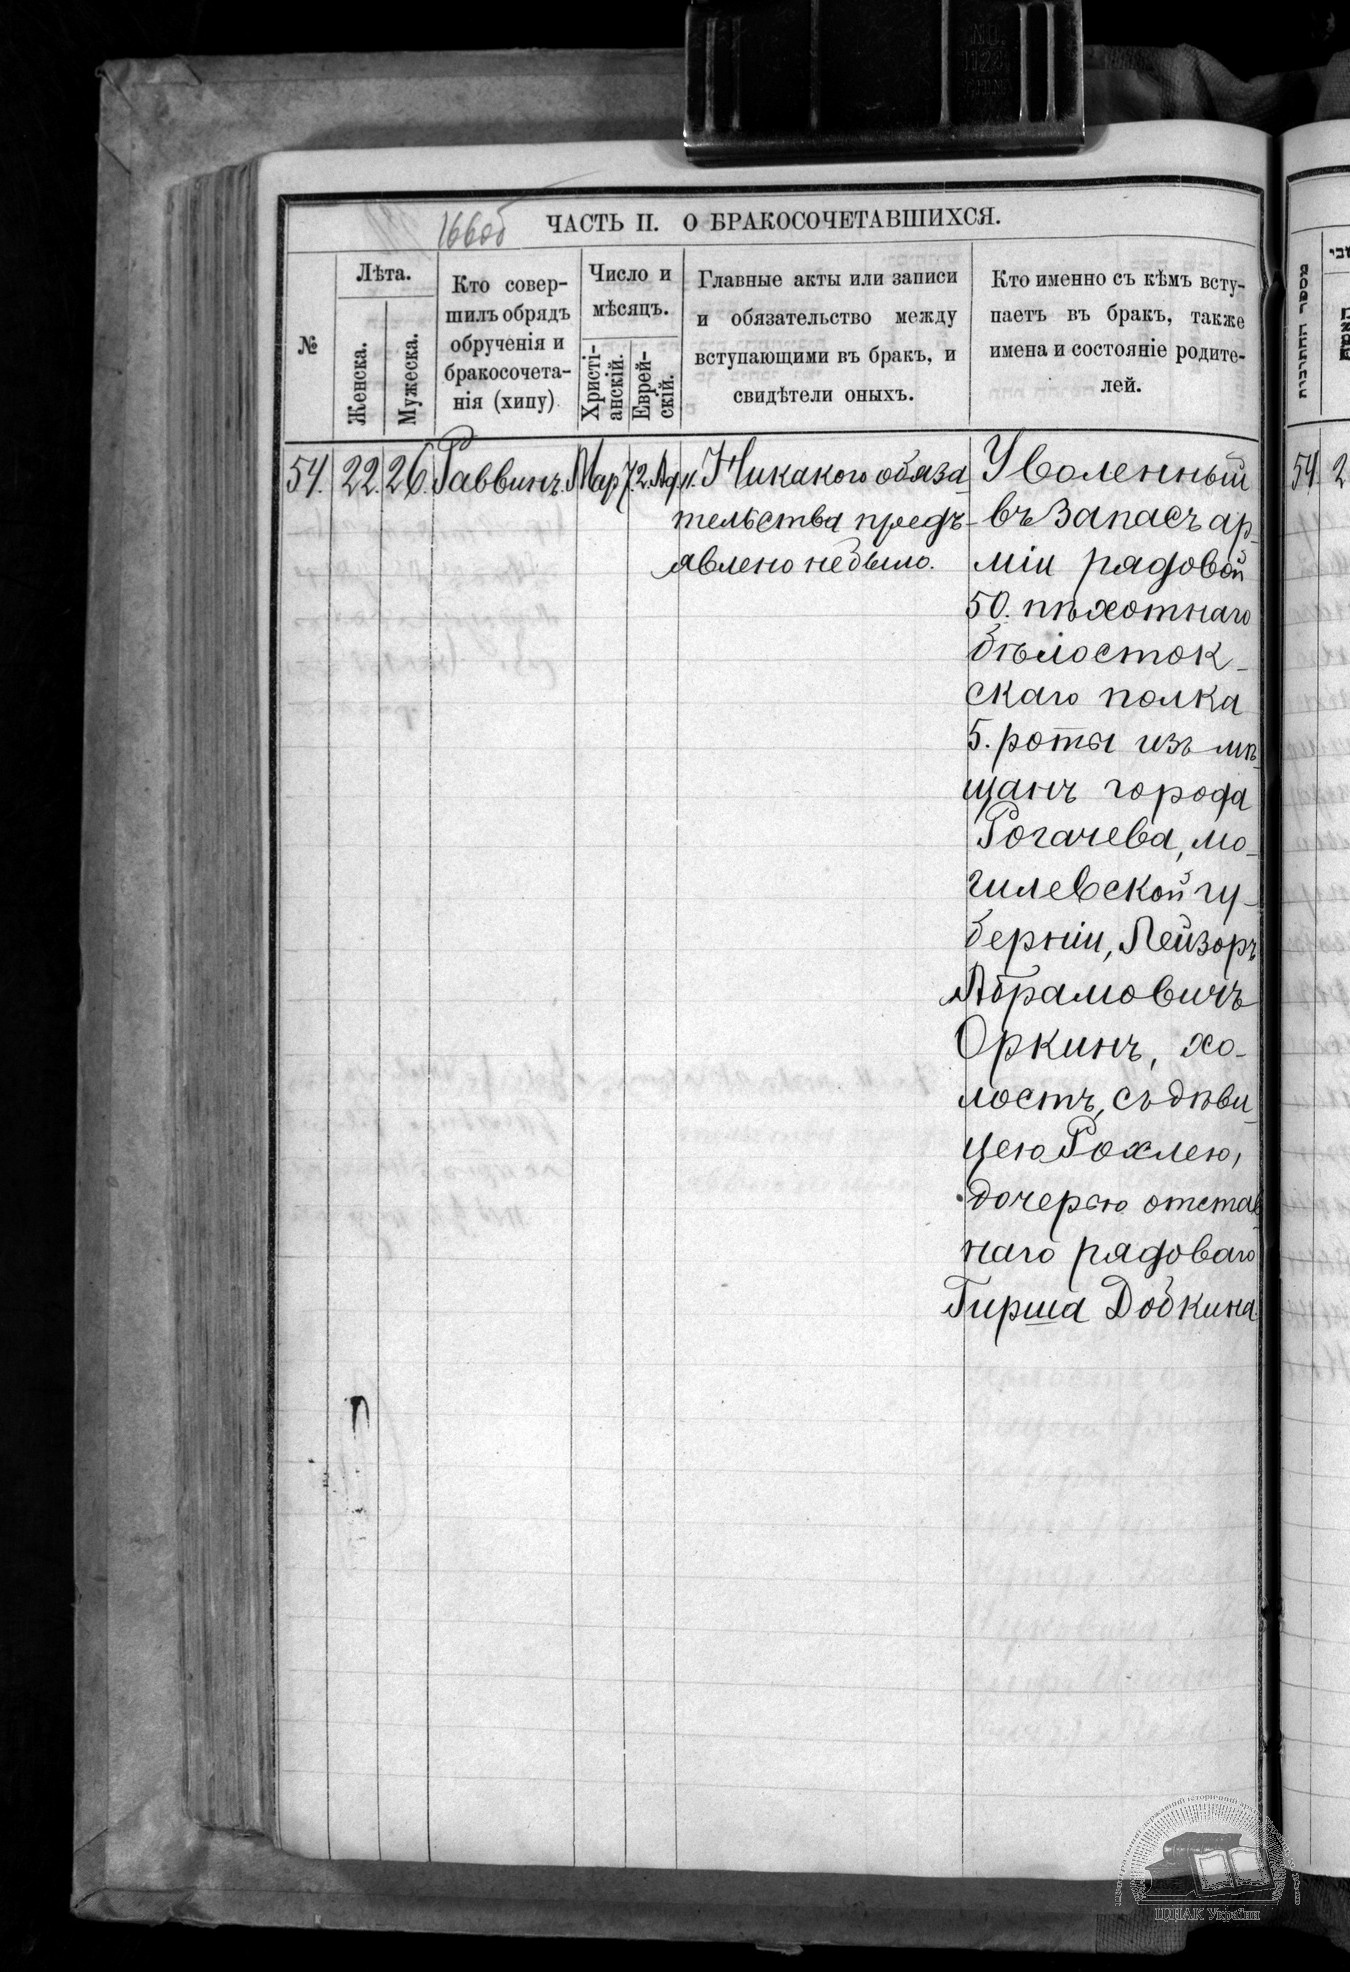 166об
ЧАСТЬ II. О БРАКОСОЧЕТАВШИХСЯ.
№
Лѣта.
Женска.
Мужеска.
Кто совер-
шилъ обрядъ
обрученія и
бракосочета-
нія (хипу)
Число и
мѣсяцъ.
Христі-
анскій.
Еврей-
скій.
Главные акты или записи
и обязательство между
вступающими въ бракъ, и
свидѣтели оныхъ.
Кто именно съ кѣмъ всту-
паетъ въ бракъ, также
имена и состояніе родите-
лей.
54. 22. 26. Раввинъ. Мар 7. 2. Ад. II. Никакого обяза-
тельства предъ-
явлено не было.
Уволенный
въ запасъ ар-
міи рядовой
50. пѣхотнаго
бѣлосток-
скаго полка
5. роты изъ мѣ-
щанъ города
Рогачева, мо-
гилевской гу-
берніи, Лейзоръ
Абрамовичъ
Оркинъ, хо-
лостъ, съ дѣви-
цею Рохлею,
дочерью отстав
наго рядоваго
Гирша Добкина.
מספר החתונה
54. 2
ЦДІАК України